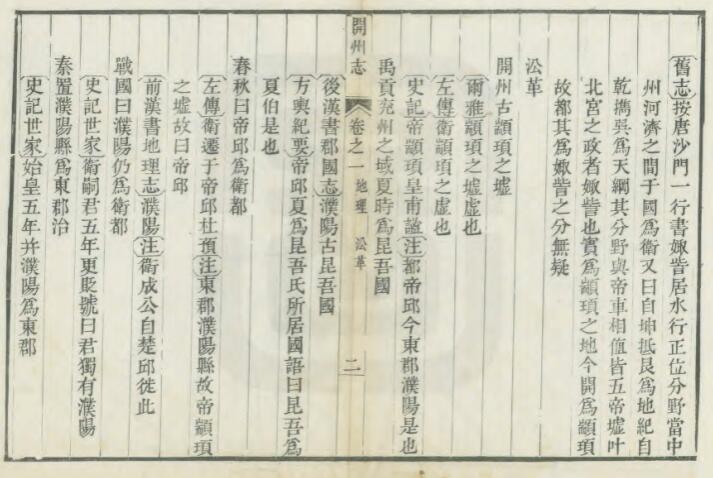 舊志按唐沙門一行書娵訾居水行正位分野當中
州河濟之間于國爲衛又曰自坤抵艮爲地紀自
乾擕巽爲天綱其分野與帝車相值皆五帝墟叶
北宮之政者娵訾也實爲顓頊之地今開爲顓頊
故都其爲娵訾之分無疑
㳂革
開州古顓頊之墟
爾雅顓頊之墟虛也
左傳衛顓頊之虛也
史記帝顓頊皇甫謐注都帝邱今東郡濮陽是也
禹貢兖州之域夏時爲昆吾國
開州志
卷之一
地理
㳂革
二
後漢書郡國志濮陽古昆吾國
方輿紀要帝邱夏爲昆吾氏所居國語曰昆吾爲
夏伯是也
春秋曰帝邱爲衛都
左傳衛遷于帝邱杜預注東郡濮陽縣故帝顓頊
之墟故曰帝邱
前漢書地理志濮陽注衛成公自楚邱徙此
戰國曰濮陽仍爲衛都
史記世家衛嗣君五年更貶號曰君獨有濮陽
秦置濮陽縣爲東郡治
史記世家始皇五年并濮陽爲東郡